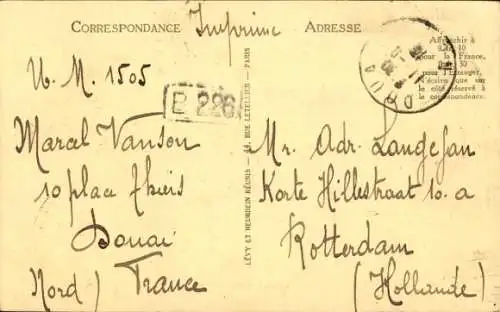 CORRESPONDANCE
Imprimé
ADRESSE
Affranchir à
0 fr. 10
pour la France,
0 fr. 30
pour l'Etranger,
n'écrire que
le côté réservé à
la correspondance.
DOUAI
U. M. 1505
B 226
Marcel Vanson
10 place Thiers
Douai
Nord) France
LÉVY ET NEURDEIN RÉUNIS - 44, RUE LETELLIER - PARIS
Mr. Adr. Langejan
Korte Hillestraat 10.a
Rotterdam
(Hollande)